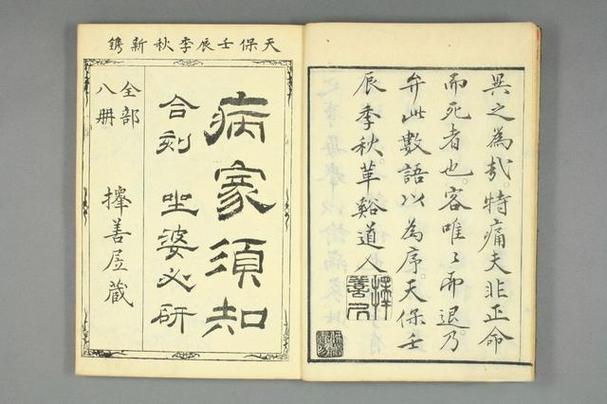 異之為哉。特痛夫非正命
而死者也。容唯々而退乃
弁此數語以為序。天保壬
辰季秋革谿道人
天保壬辰季秋新鐫
病家須知
合刻 坐婆必研
全部
八冊
擇善居蔵